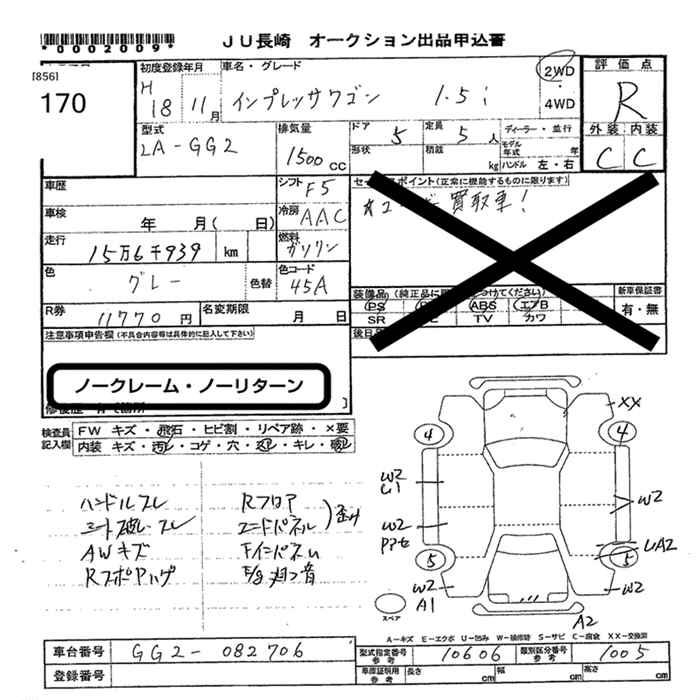 *0002009*
JU長崎 オークション出品申込書
[856]
170
初度登録年月
H
18 11月
車名・グレード
インプレッサワゴン 1.5i
2WD
4WD
評価点
R
外装 内装
C C
型式
LA-GG2
排気量
1500 CC
ドア 5
定員 5人
形状
積載 kg
ディーラー・並行
モデル年式 年
ハンドル 左・右
車歴
シフト F5
車検 年 月( 日)
冷房 AAC
走行 15万6千939 km
燃料 ガソリン
色 グレー 色替
色コード 45A
R券 11770円
名変期限 月 日
(正常に機能するものに限ります)
買取車!
装備品
PS ABS エアB
SR TV カワ
新車保証書
有・無
注意事項申告欄(不具合内容等は具体的に記入して下さい)
ノークレーム・ノーリターン
検査員記入欄
FW キズ・飛石・ヒビ割・リペア跡・×要
内装 キズ・汚レ・コゲ・穴・スレ・キレ・破レ
ハンドルスレ Rフロア
シート破レ・スレ エンドパネル 歪
AWキズ Fインパネム
XX
4 4
W2
U1
W2
W2
UA2
5 5
W2
A1
W2
A2
スペア
A-キズ E-エクボ U-凹み W-補修跡 S-サビ C-腐食 XX-交換済
車台番号 GG2-082706
登録番号
型式指定番号 参考 10606
類別区分番号 参考 1005
車庫証明用 参考 長さ cm 幅 cm 高さ cm